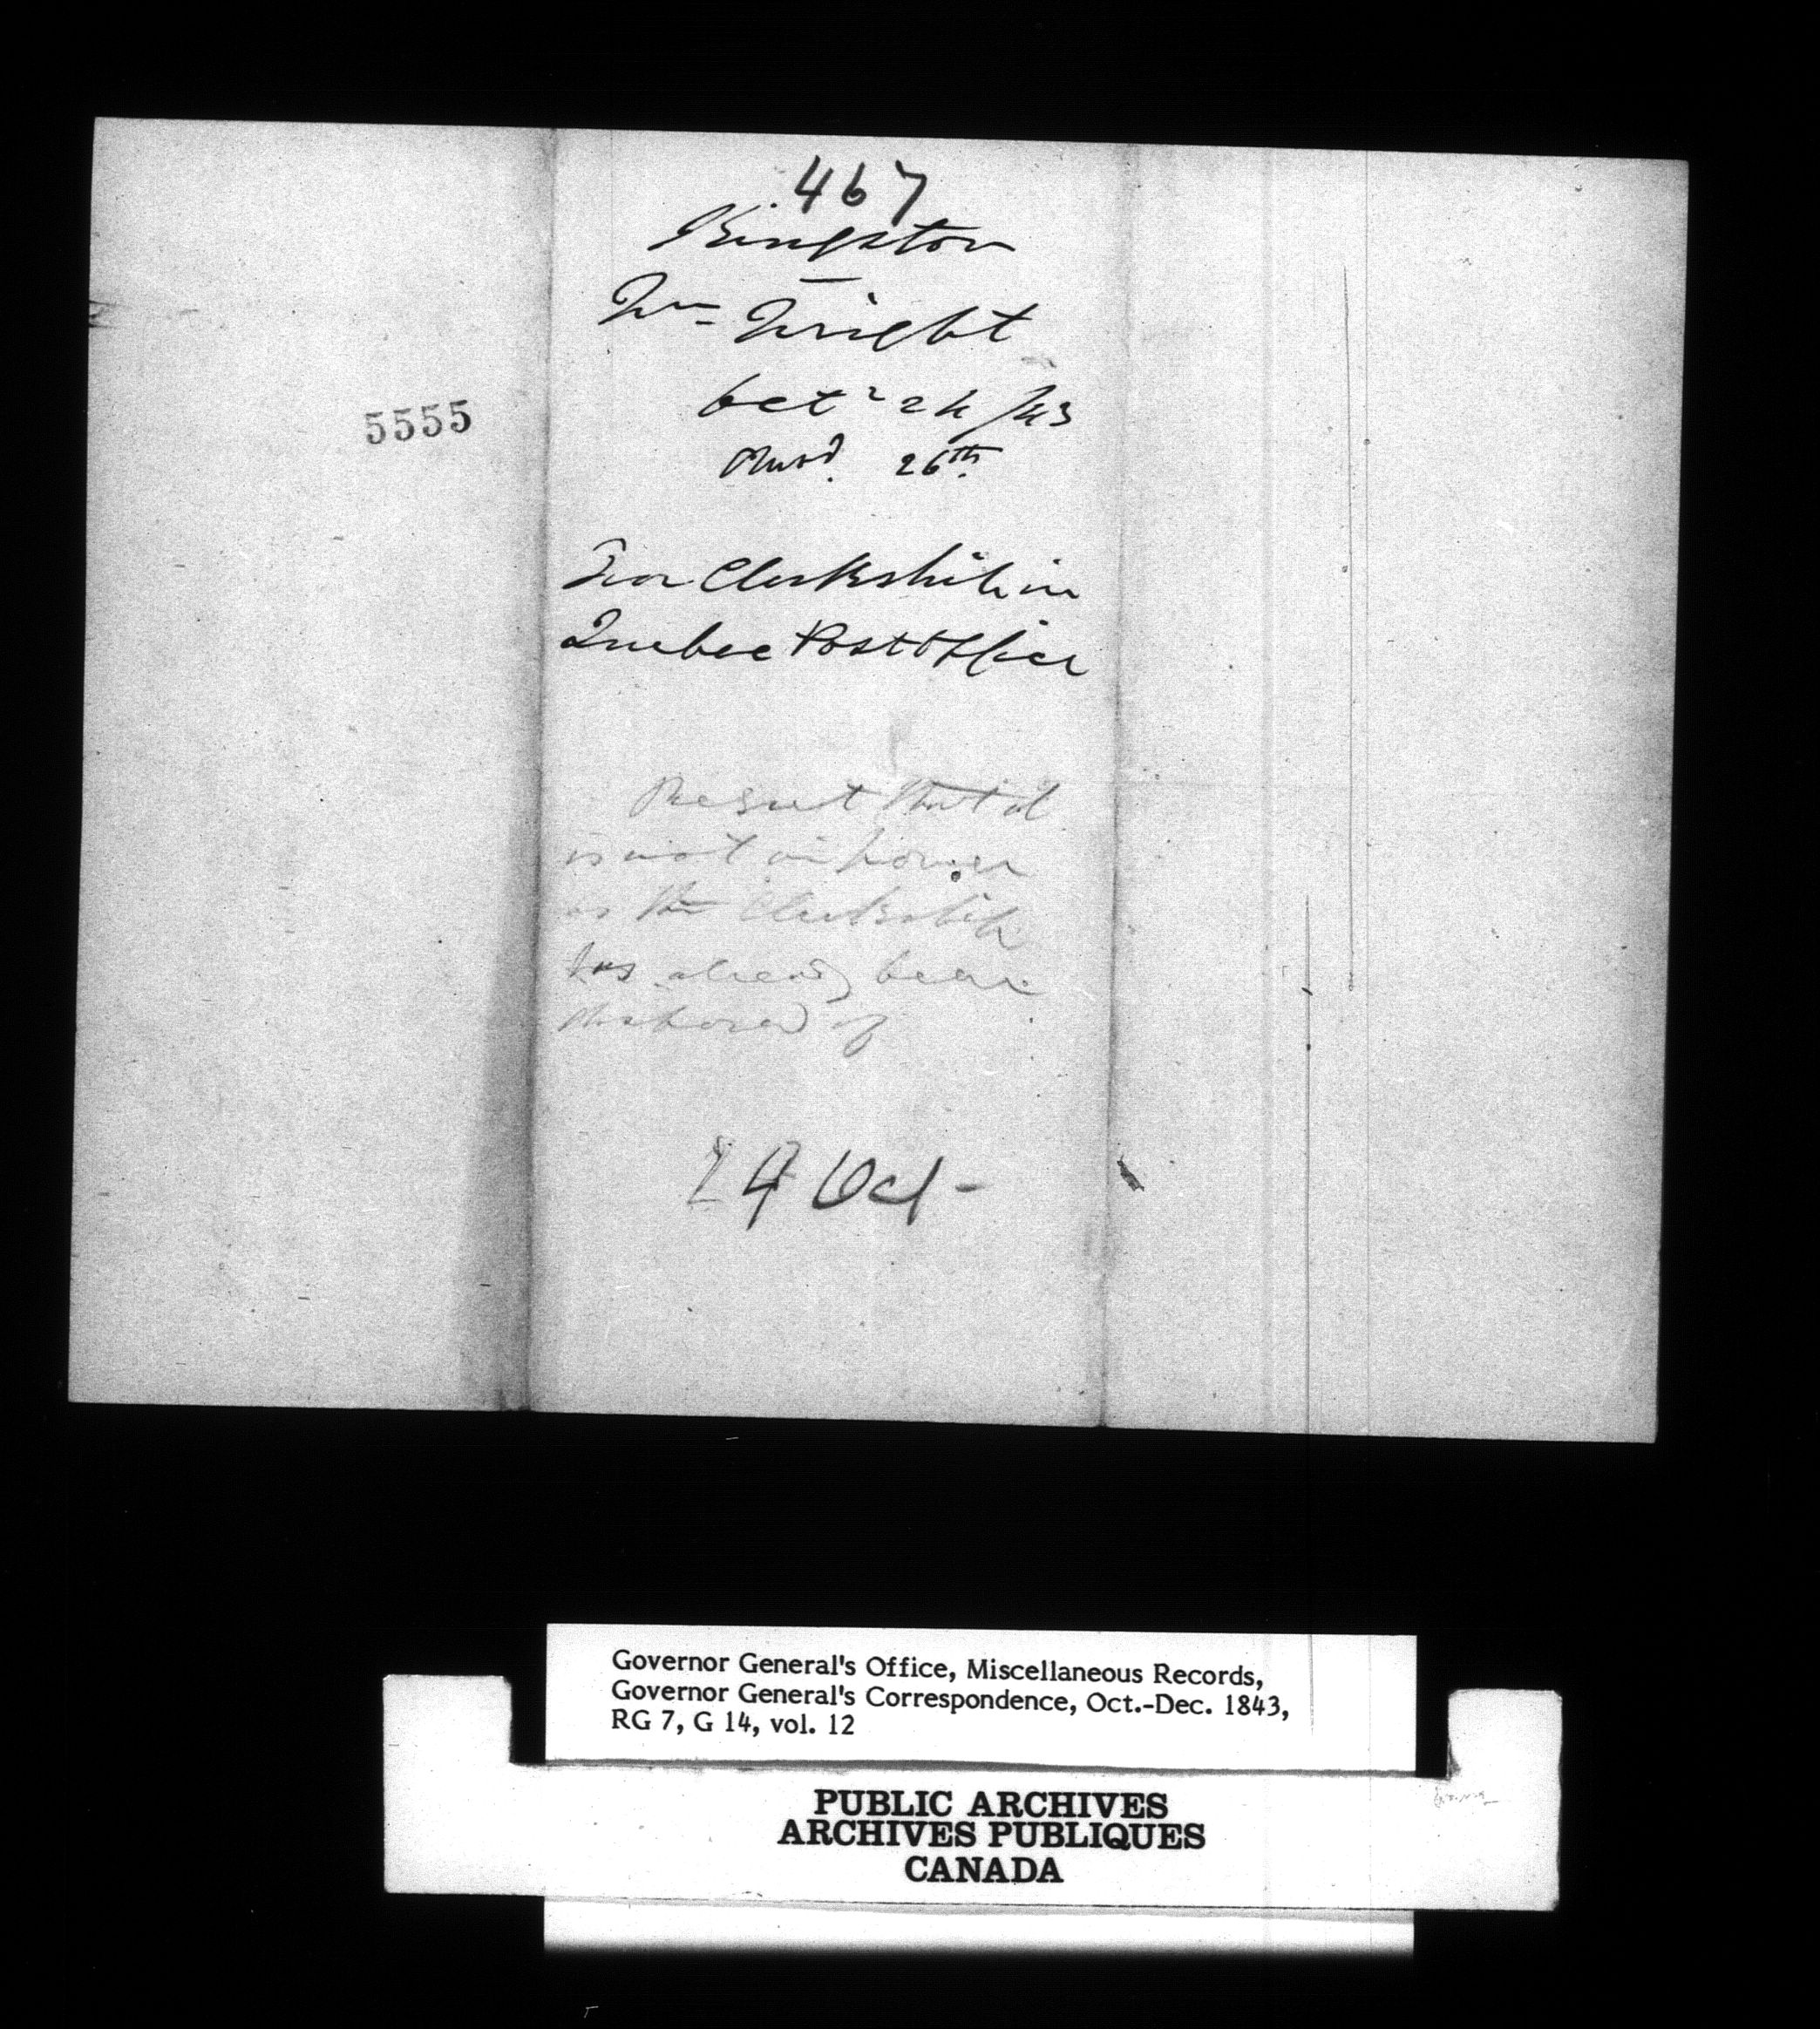 467
Kingston
Wm Wright
Octr 24/43
Recd. 26th.
5555
For Clerkship in
Quebec Post Office
Regret that it
is not in power
as the Clerkship
has already been
disposed of
29 Oct -
Governor General's Office, Miscellaneous Records,
Governor General's Correspondence, Oct.-Dec. 1843,
RG 7, G 14, vol. 12
PUBLIC ARCHIVES
ARCHIVES PUBLIQUES
CANADA